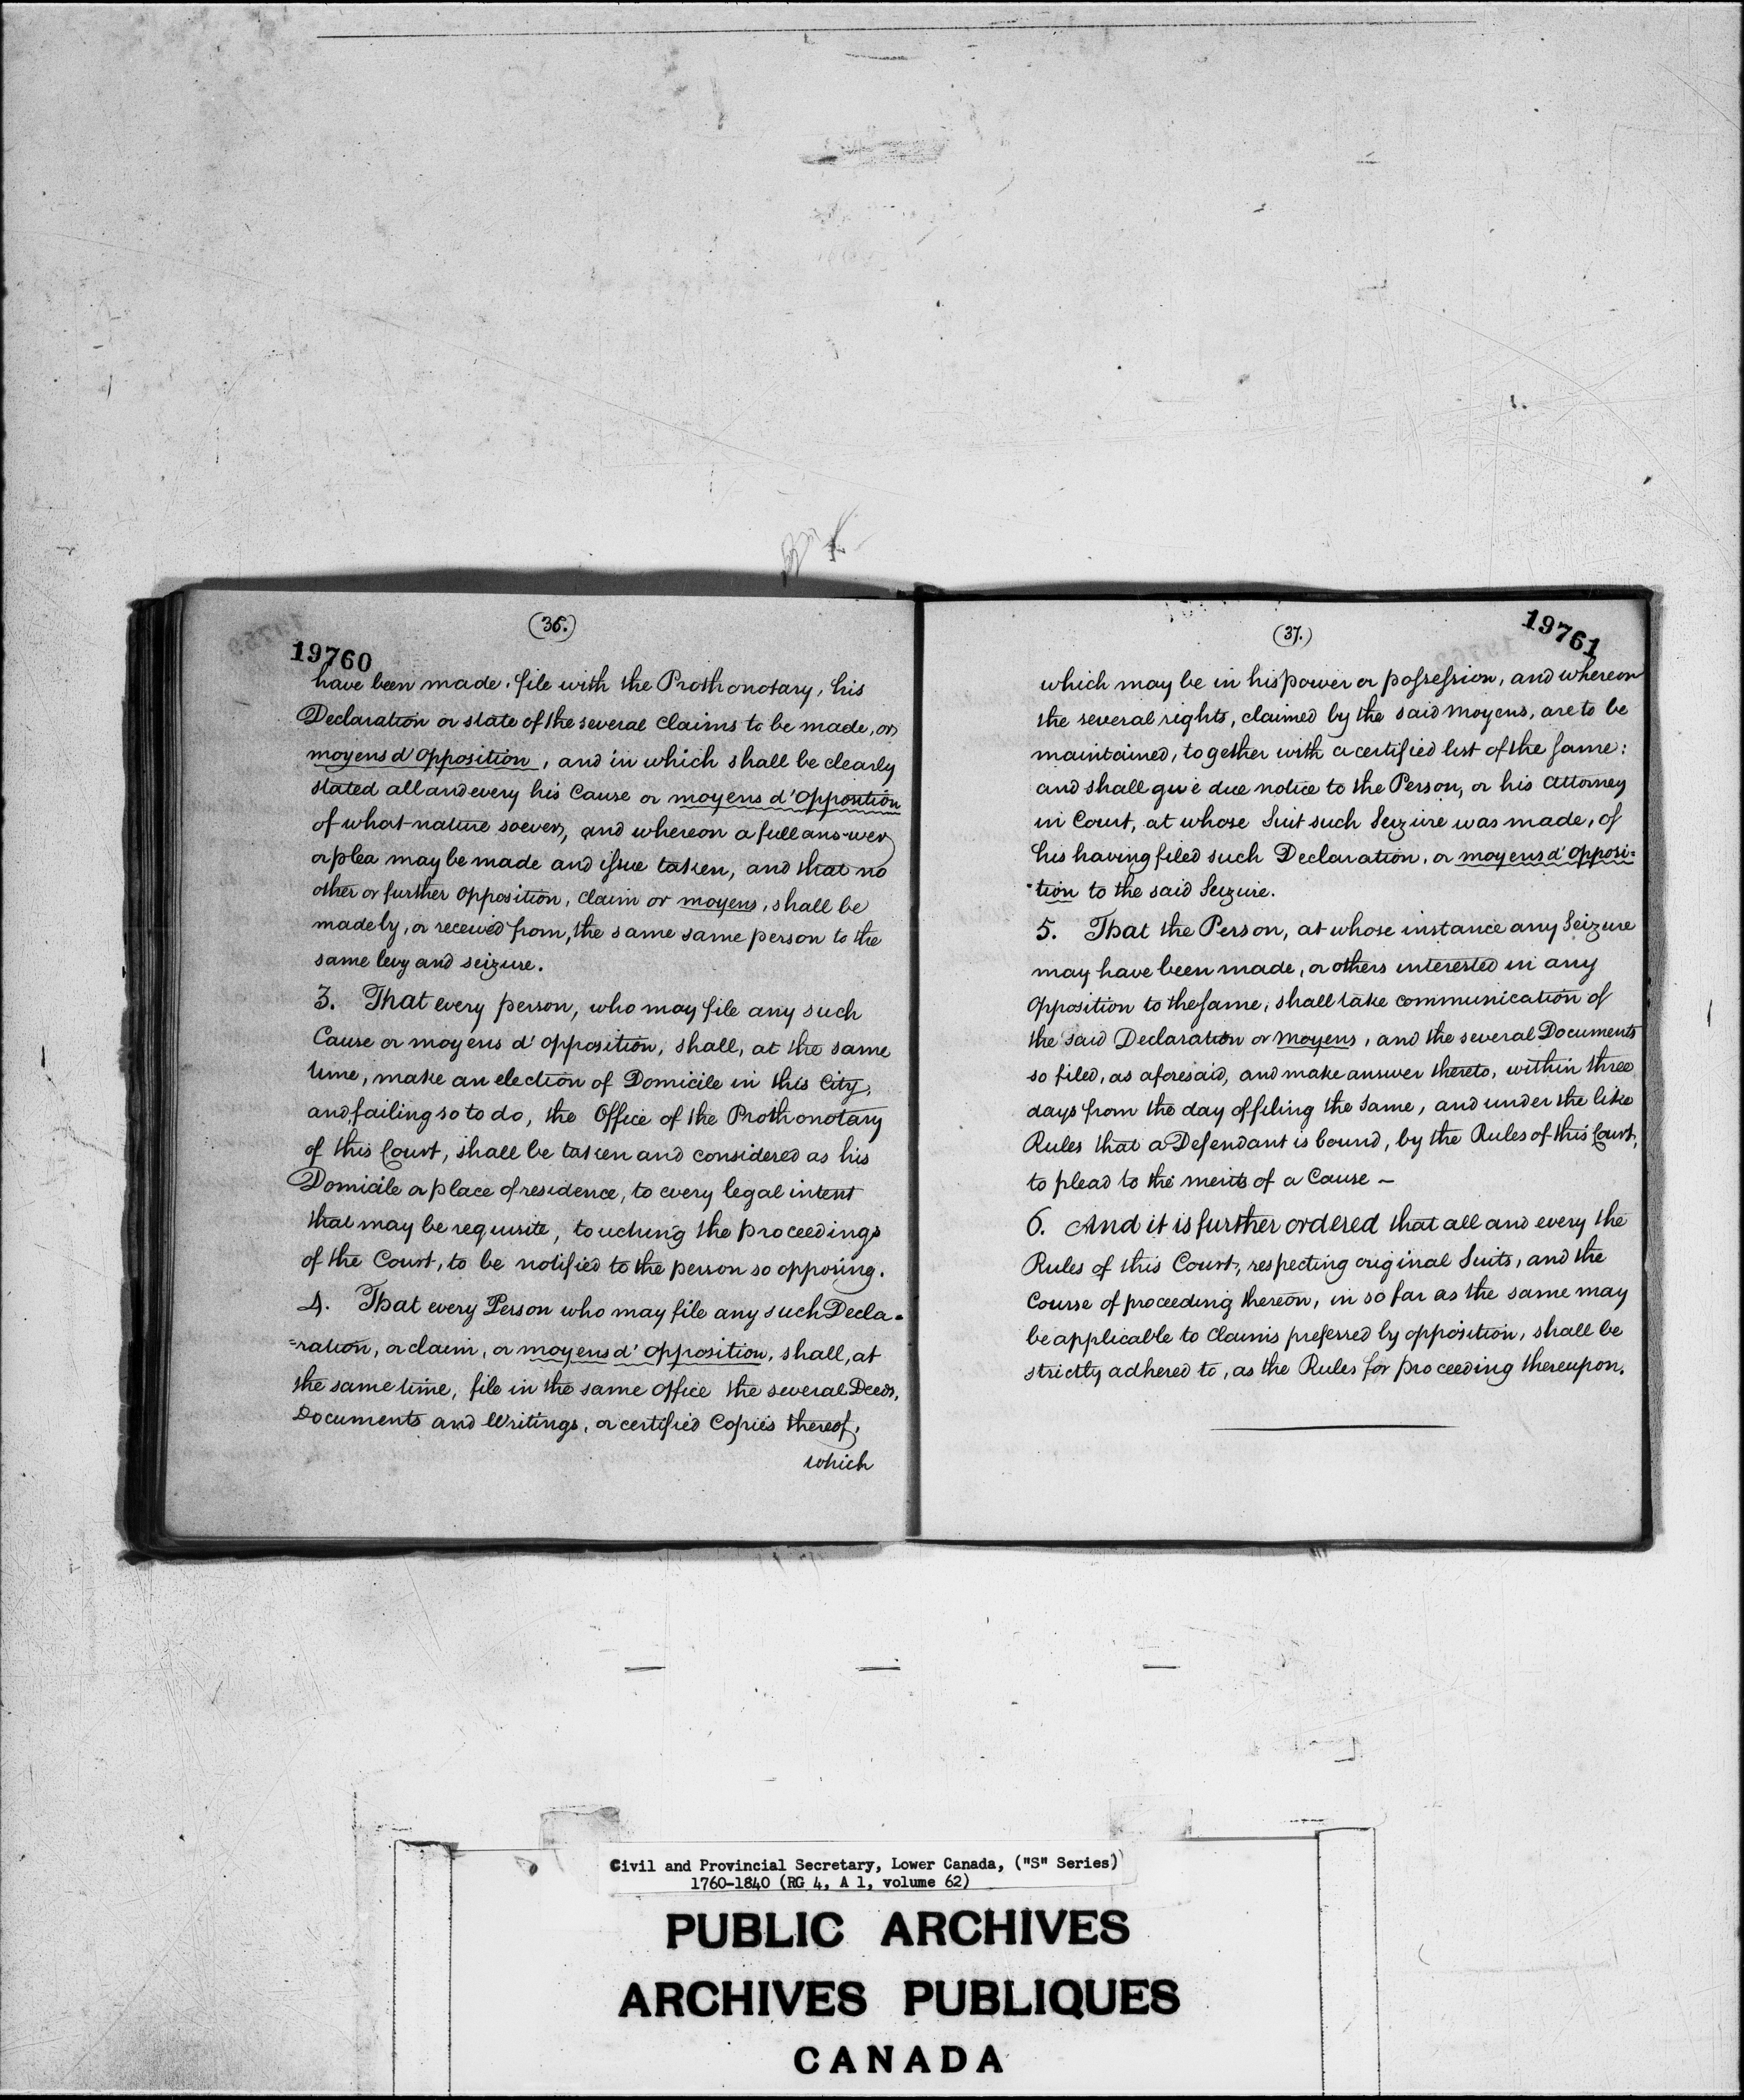 (36.)
19760
have been made, file with the Prothonotary, his
Declaration or state of the several claims to be made, or
moyens d'opposition, and in which shall be clearly
stated all and every his Cause or moyens d'Oppontion
of what nature soever, and whereon a full answer
or plea may be made and issue taken, and that no
other or further opposition, claim or moyens, shall be
made by, or received from, the same same person to the
same levy and seizure.
3. That every person, who may file any such
Cause or moyens d'opposition, shall, at the same
time, make an election of Domicile in this City,
and failing so to do, the Office of the Prothonotary
of this Court, shall be taken and considered as his
Domicile or place of residence, to every legal intent
that may be requisite, touching the proceedings
of the Court, to be notified to the person so opposing.
4. That every Person who may file any such Decla-
=ration, or claim, or moyens d'opposition, shall, at
the same time, file in the same office the several Deeds,
Documents and Writings, or certified Copies thereof,
which
(37.)
19761
which may be in his power or possession, and whereon
the several rights, claimed by the said moyens, are to be
maintained, together with a certified list of the same:
and shall give due notice to the Person, or his Attorney
in Court, at whose Suit such Seizure was made, of
his having filed such Declaration, or moyens d'opposi=
-tion to the said Seizure.
5. That the Person, at whose instance any Seizure
may have been made, or others interested in any
opposition to the same, shall take communication of
the said Declaration or moyens, and the several Documents
so filed, as aforesaid, and make answer thereto, within three
days from the day of filing the same, and under the like
Rules that a Defendant is bound, by the Rules of this Court,
to plead to the merits of a Cause –
6. And it is further ordered that all and every the
Rules of this Court, respecting original Suits, and the
Course of proceeding thereon, in so far as the same may
be applicable to claims preferred by opposition, shall be
strictly adhered to, as the Rules for proceeding thereupon.
Civil and Provincial Secretary, Lower Canada, ("S" Series)
1760-1840 (RG 4, A 1, volume 62)
PUBLIC ARCHIVES
ARCHIVES PUBLIQUES
CANADA